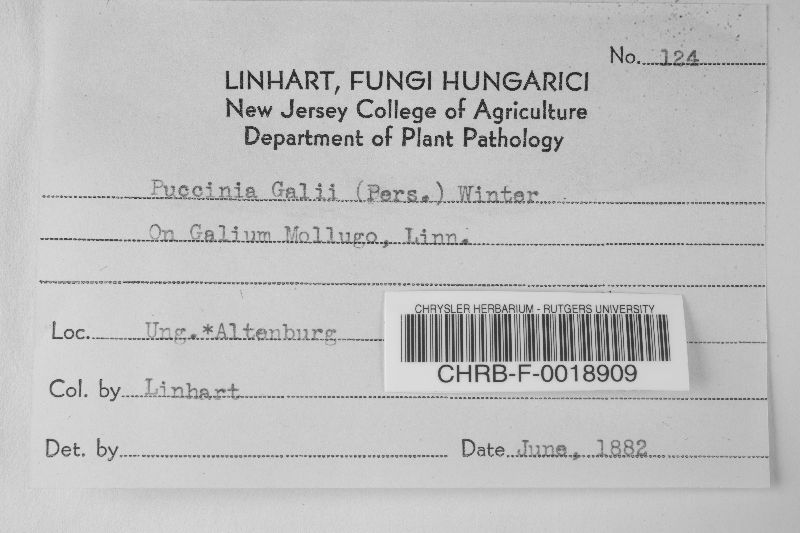 No. 124
LINHART, FUNGI HUNGARICI
New Jersey College of Agriculture
Department of Plant Pathology
Puccinia Galii (Pers.) Winter
On Galium Mollugo, Linn.
Loc. Ung.*Altenburg
CHRYSLER HERBARIUM - RUTGERS UNIVERSITY
CHRB-F-0018909
Col. by Linhart
Det. by
Date June, 1882